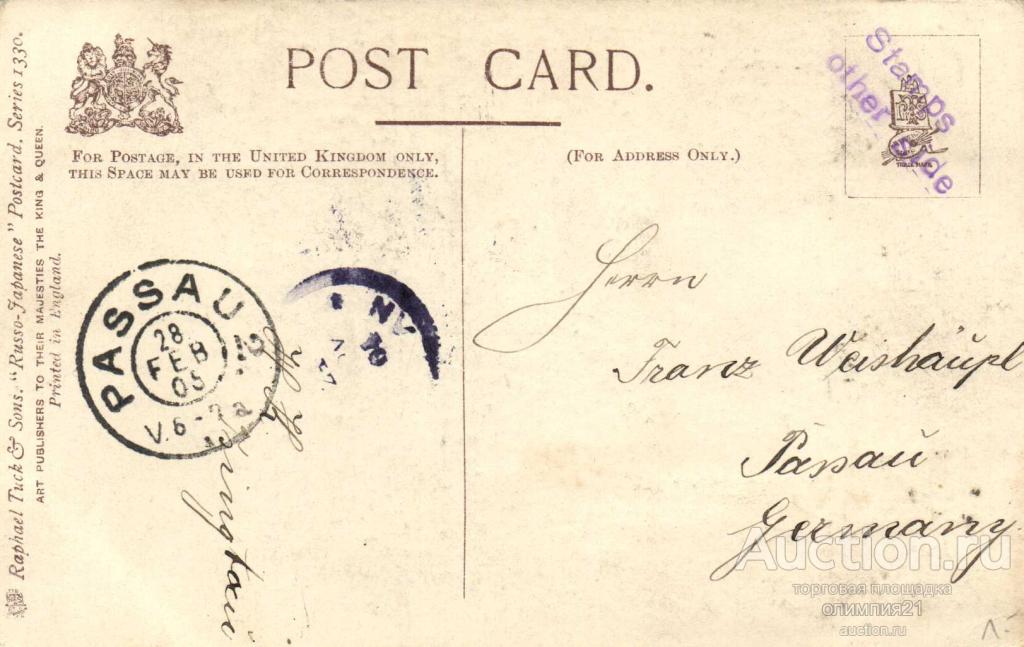 POST CARD.
FOR POSTAGE, IN THE UNITED KINGDOM ONLY,
THIS SPACE MAY BE USED FOR CORRESPONDENCE.
(FOR ADDRESS ONLY.)
Stamps
other side
TRADE MARK
Raphael Tuck & Sons. "Russo-Japanese" Postcard. Series 1330.
ART PUBLISHERS TO THEIR MAJESTIES THE KING & QUEEN.
Printed in England.
PASSAU 2
28
FEB
05
V. 6-7a
NV
19
Herrn
Franz Weishäupl
Passau
Germany
Auction.ru
торговая площадка
олимпия21
auction.ru